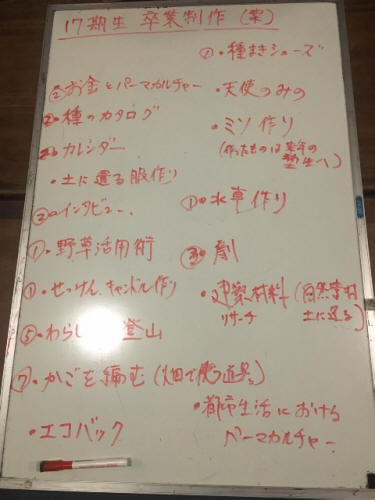 17期生 卒業制作 (案)
①・種まきシューズ
②お金とパーマカルチャー
・天使のみの
②・種のカタログ
・ミソ作り
(作ったものは来年の塾生へ)
カレンダー
・土に還る服作り
②・インタビュー
①・水車作り
①・野草活用術
③・劇
①・せっけん、キャンドル作り
・建築材料 (自然素材
リサーチ 土に還る)
⑤・わらじ 登山
⑦・かごを編む(畑で使う道具)
・都市生活における
パーマカルチャー
・エコバック